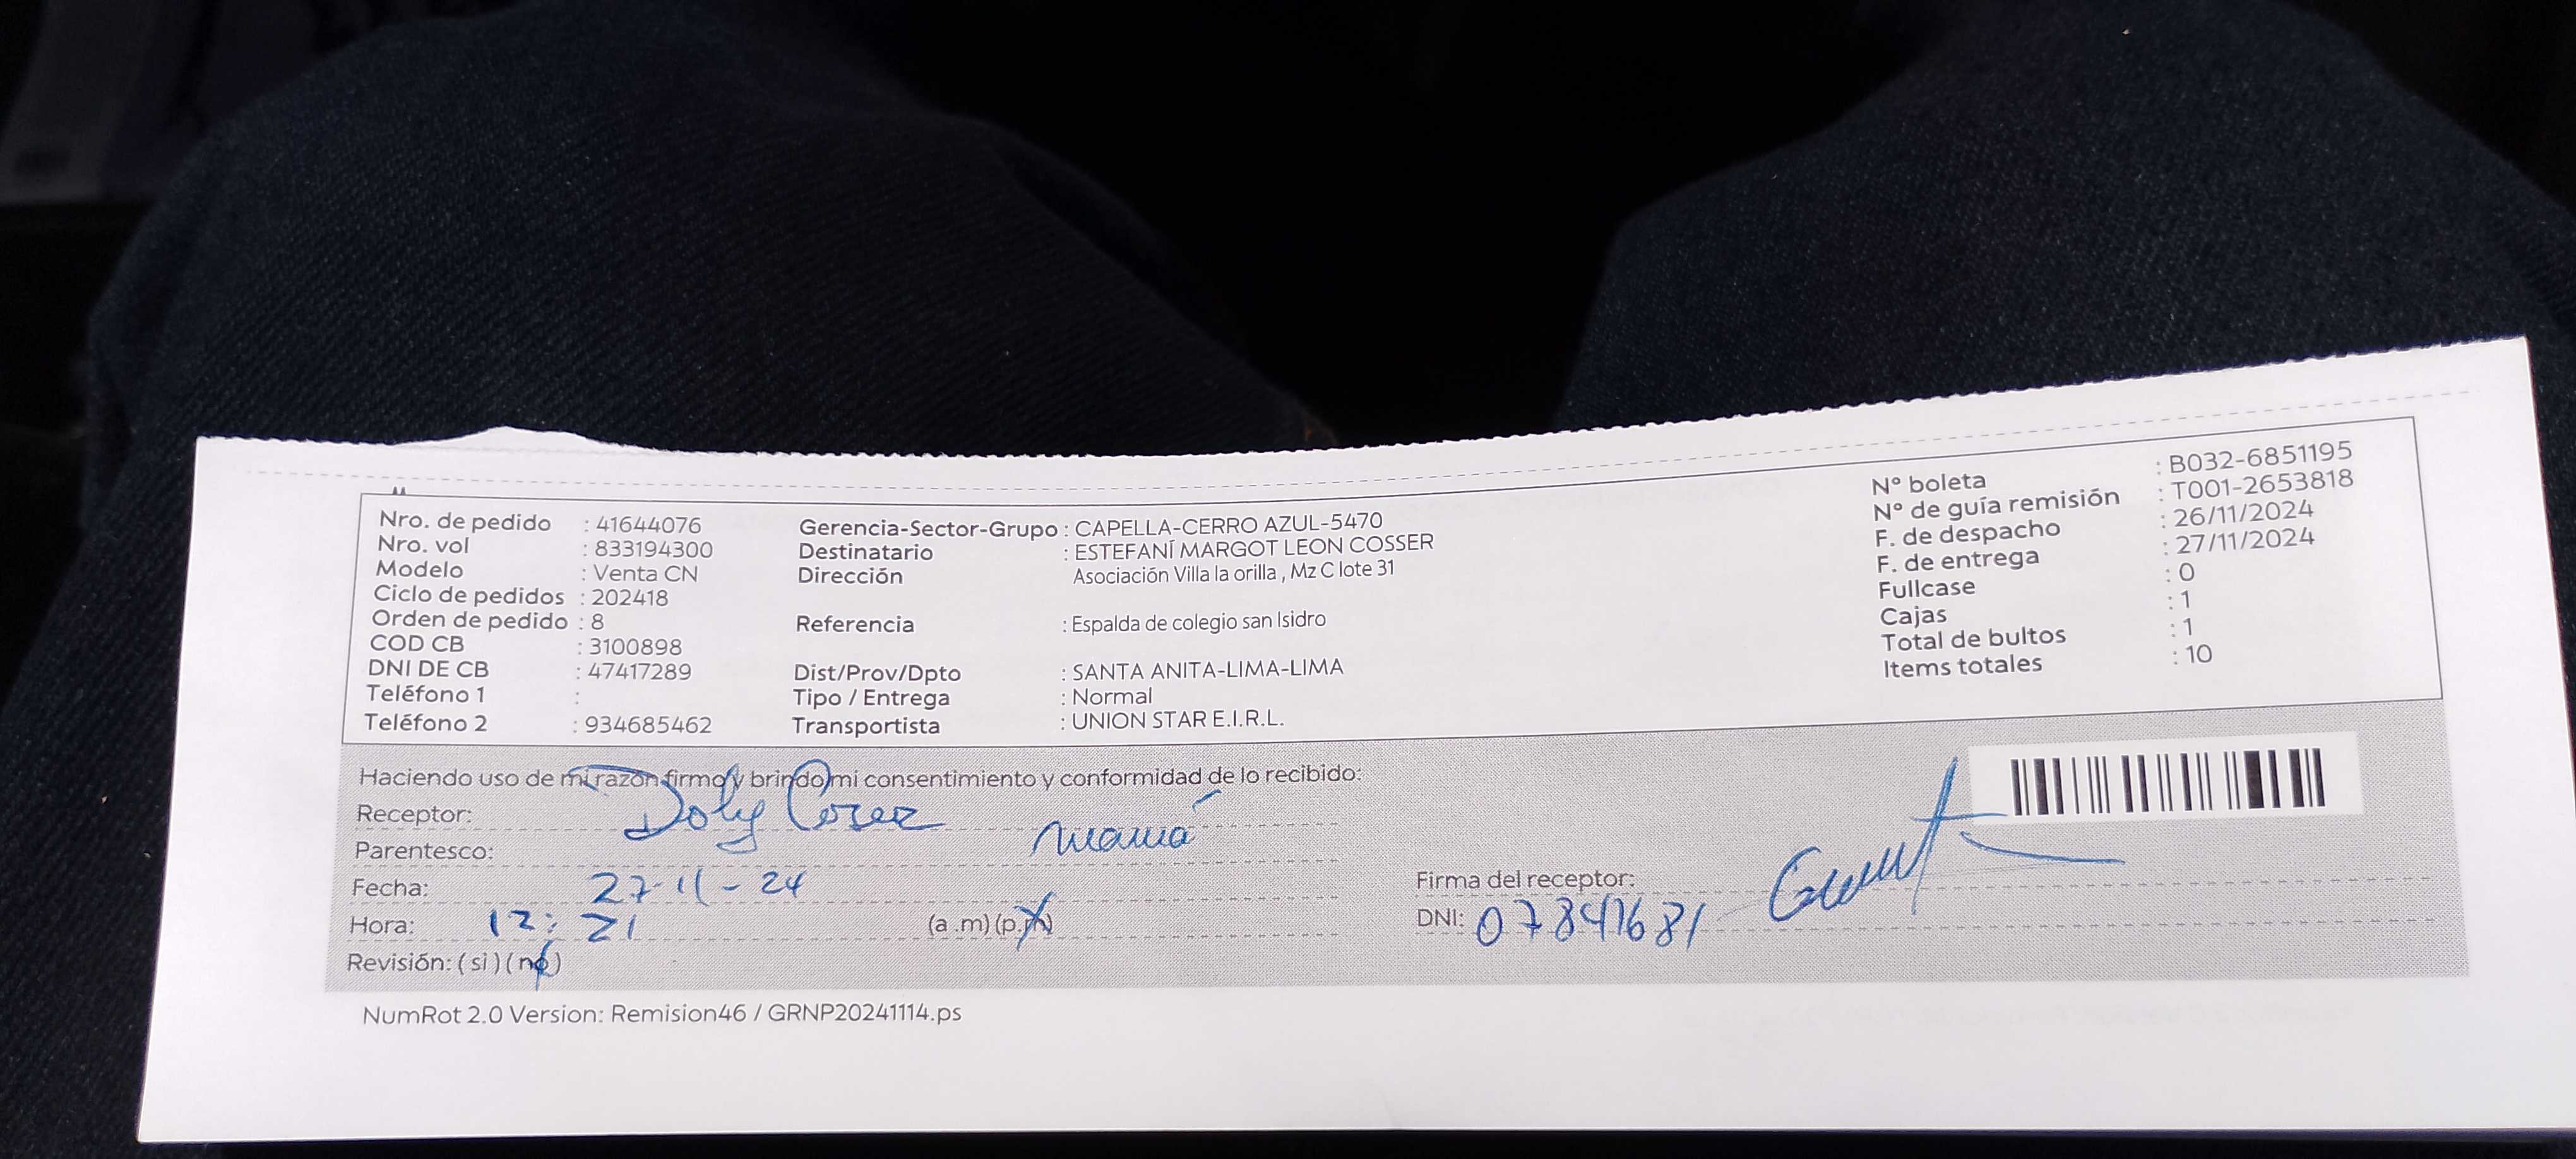 Nro. de pedido : 41644076
Nro. vol : 833194300
Modelo : Venta CN
Ciclo de pedidos : 202418
Orden de pedido : 8
COD CB : 3100898
DNI DE CB : 47417289
Teléfono 1 :
Teléfono 2 : 934685462
Gerencia-Sector-Grupo : CAPELLA-CERRO AZUL-5470
Destinatario : ESTEFANÍ MARGOT LEON COSSER
Dirección Asociación Villa la orilla , Mz C lote 31
Referencia : Espalda de colegio san Isidro
Dist/Prov/Dpto : SANTA ANITA-LIMA-LIMA
Tipo / Entrega : Normal
Transportista : UNION STAR E.I.R.L.
Nº boleta : B032-6851195
Nº de guía remisión : T001-2653818
F. de despacho : 26/11/2024
F. de entrega : 27/11/2024
Fullcase : 0
Cajas : 1
Total de bultos : 1
Items totales : 10
Haciendo uso de mi razón firmo y brindo mi consentimiento y conformidad de lo recibido:
Receptor: Doly
Parentesco: mamá
Fecha: 27-11-24
Hora: 12:21 (a .m) (p.m)
Revisión: ( si ) ( no )
Firma del receptor:
DNI: 07841681
NumRot 2.0 Version: Remision46 / GRNP20241114.ps